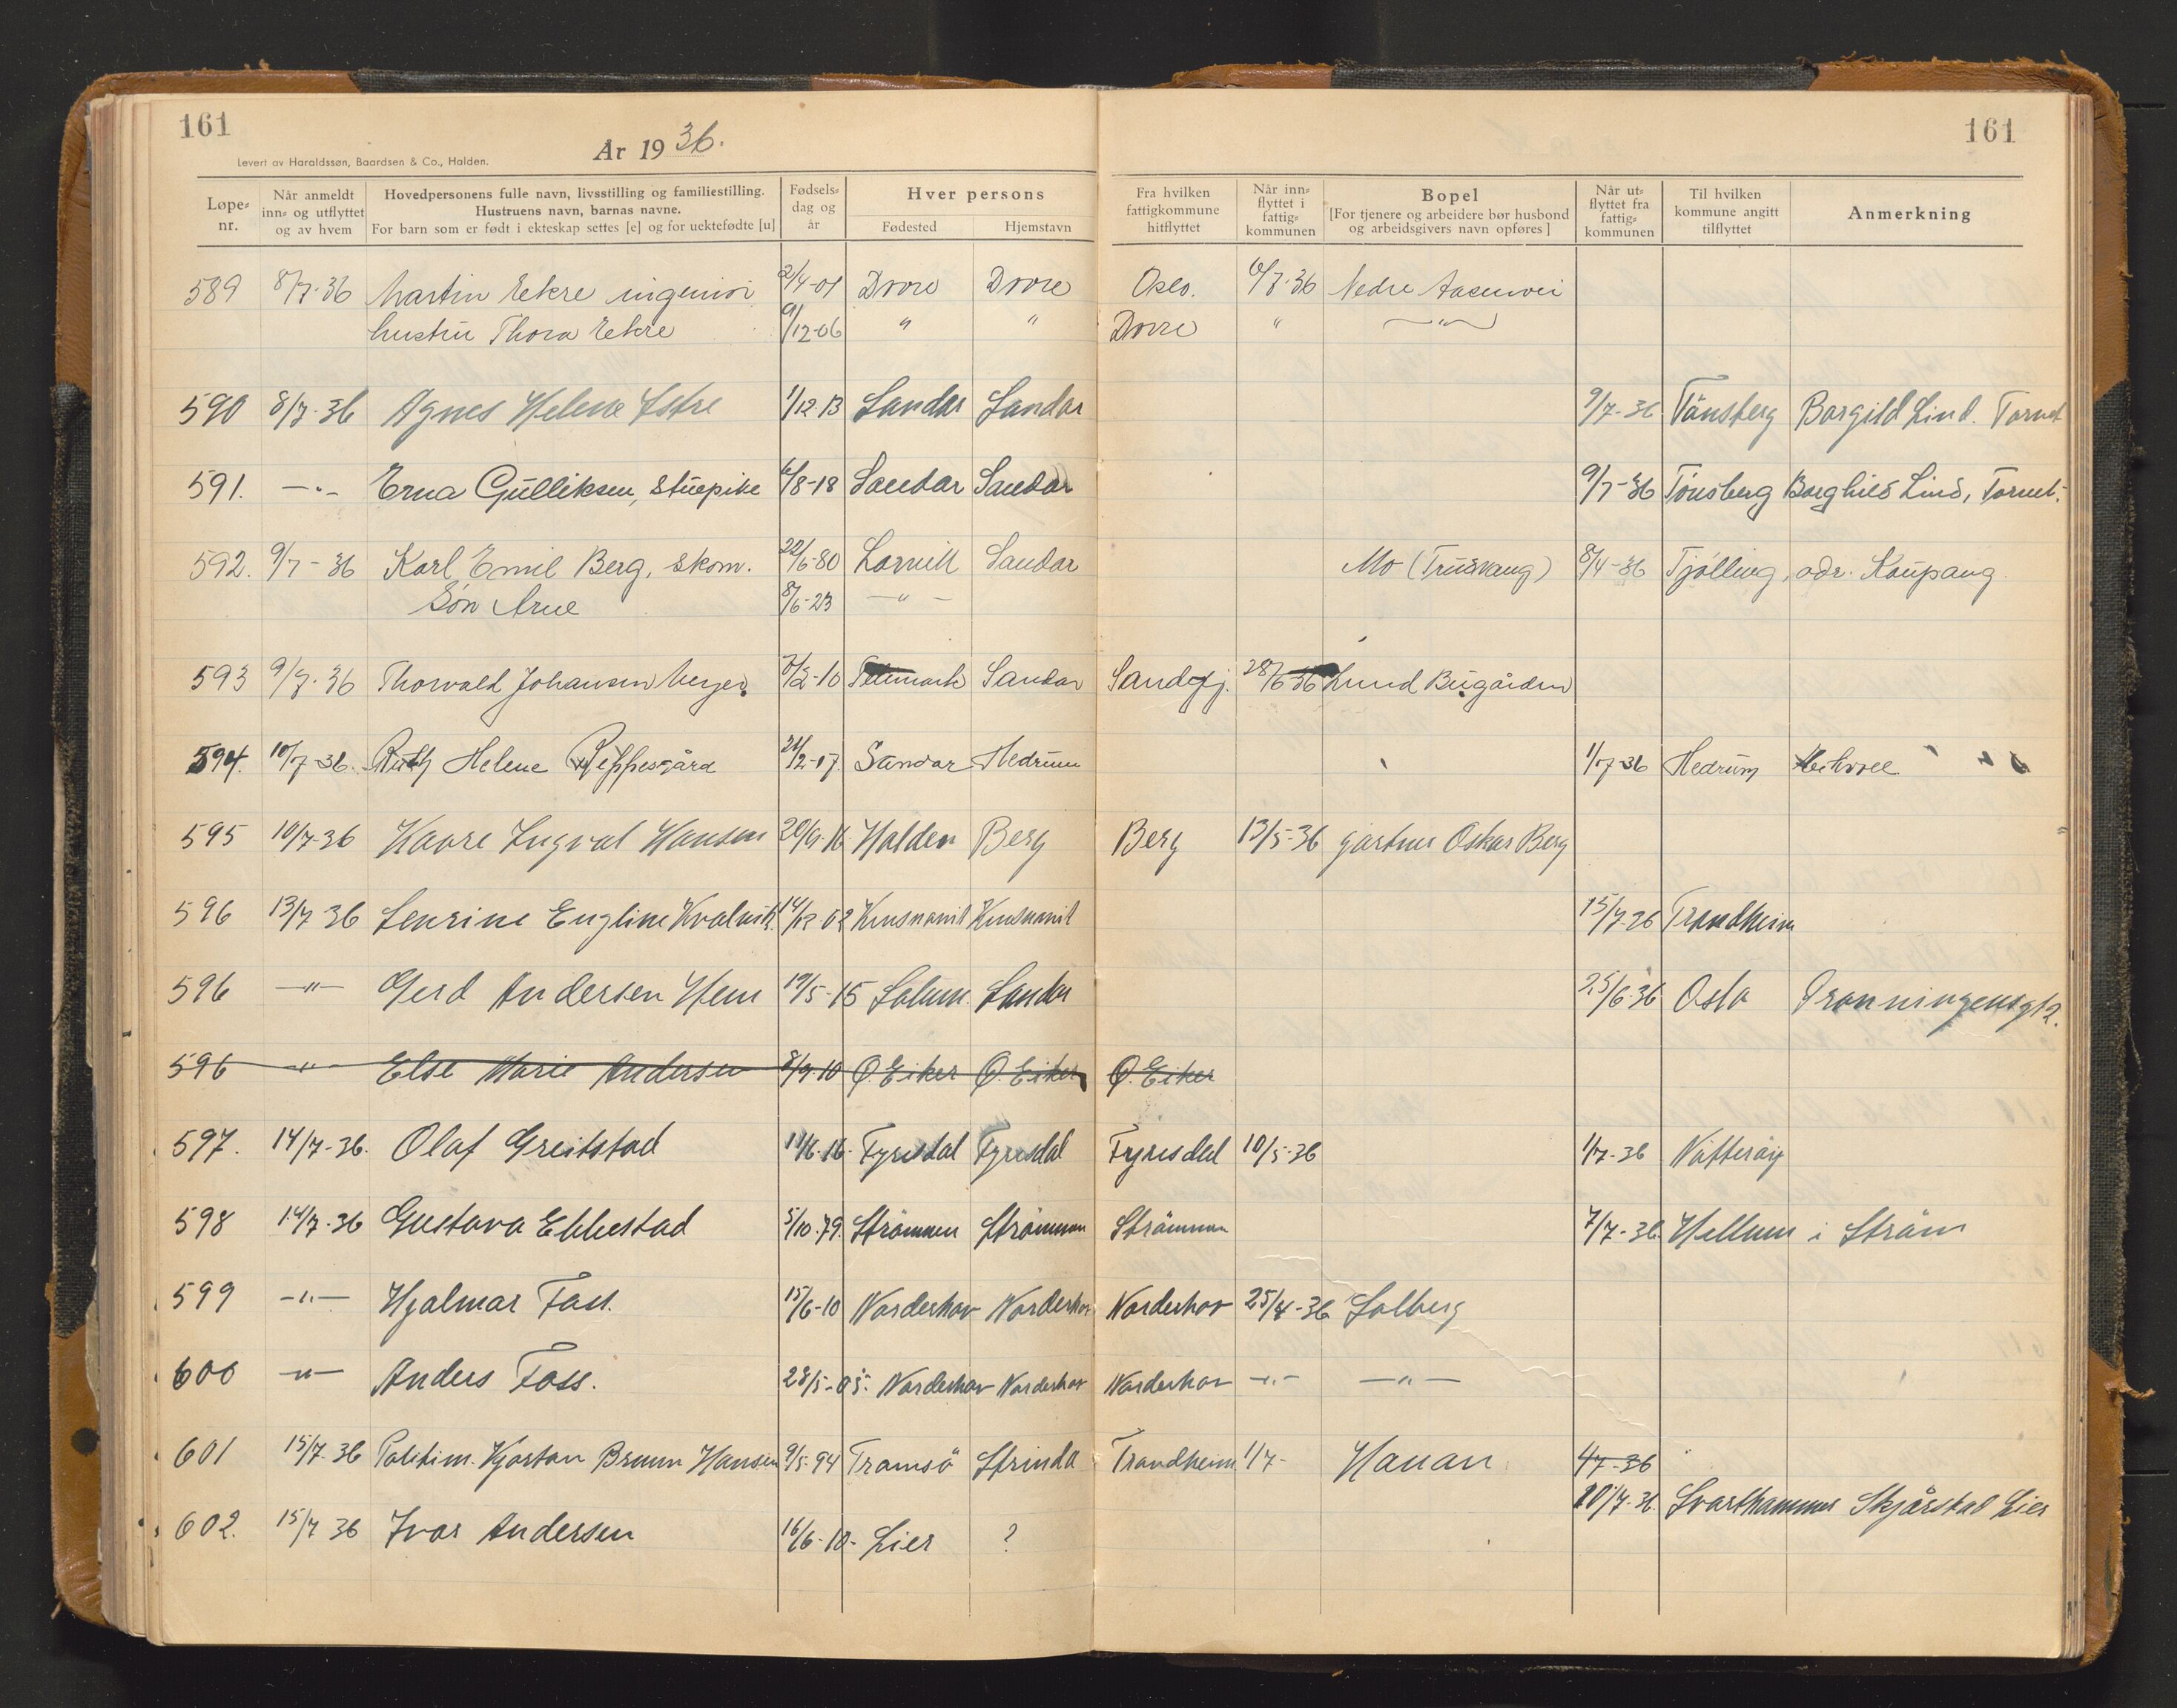 161
161
Levert av Haraldssøn, Baardsen & Co., Halden.
År 1936.
Løpe-nr.
Når anmeldt inn- og utflyttet og av hvem
Hovedpersonens fulle navn, livsstilling og familiestilling. Hustruens navn, barnas navne. For barn som er født i ekteskap settes [e] og for uektefødte [u]
Fødsels-dag og år
Hver persons
Fødested
Hjemstavn
Fra hvilken fattigkommune hitflyttet
Når inn-flyttet i fattig-kommunen
Bopel
[For tjenere og arbeidere bør husbond og arbeidsgivers navn opføres]
Når ut-flyttet fra fattig-kommunen
Til hvilken kommune angitt tilflyttet
Anmerkning
589 8/7-36 Martin Eekre ingeniør 2/4-01 Dovre Dovre Oslo. 6/7-36 Nedre Aasenvei
hustru Thora Eekre 9/12-06 " " Dovre " -"-
590 8/7-36 Agnes Helene Istre 1/12-13 Sandar Sandar 9/7-36 Tønsberg Borgild Lind. Torvet
591. -"- Erna Gulliksen, stuepike 6/8-18 Sandar Sandar 9/7-36 Tønsberg Borghild Lind, Torvet.
592. 9/7-36 Karl Emil Berg, skom. 22/6-80 Larvik Sandar Mo (Truevang) 8/4-36 Tjølling, adr. Kaupang
Søn Arne 8/6-23 -"-
593 9/7-36 Thorvald Johansen 7/2-10 Telemark Sandar Sandefj. 28/6-36 Lund Bugården
594. 10/7-36. Ruth Helene Rippesgård 21/2-07. Sandar Hedrum 1/7-36 Hedrum
595 10/7-36 Kaare Ingval Hansen 20/9-16 Halden Berg Berg 13/5-36 gartner Oskar Berg
596 13/7 36 Lenrine Engline Kvalvik 14/12-02 15/7-36 Trondheim
596 -"- Gerd Andersen Hem 19/5-15 Solum Sandar 25/6-36 Oslo Dronningensgt 2.
596 -"- Else Marie Andersen 8/9-10 Ø. Eiker Ø. Eiker Ø. Eiker
597. 14/7-36. Olaf Greitstad 11/6-16. Fyresdal Fyresdal Fyresdal 10/5-36 1/7-36 Nøtterøy
598 14/7-36 Gustava Ebbestad 5/10-79. Strømmen Strømmen Strømmen 7/7-36. Hellum i Strøm
599 -"- Hjalmar Foss. 15/6-10 Norderhov Norderhov Norderhov 25/4-36 Solberg
600 -"- Anders Foss. 28/5-05. Norderhov Norderhov Norderhov -"- -"-
601 15/7-36 Politim. Kjartan Bruun Hansen 9/5-94 Tromsø Strinda Trondheim 1/7- Hauan 4/7-36
20/7-36. Svarthammer Skjårstad Lier
602. 15/7 36 Ivar Andersen 16/6-10- Lier ?